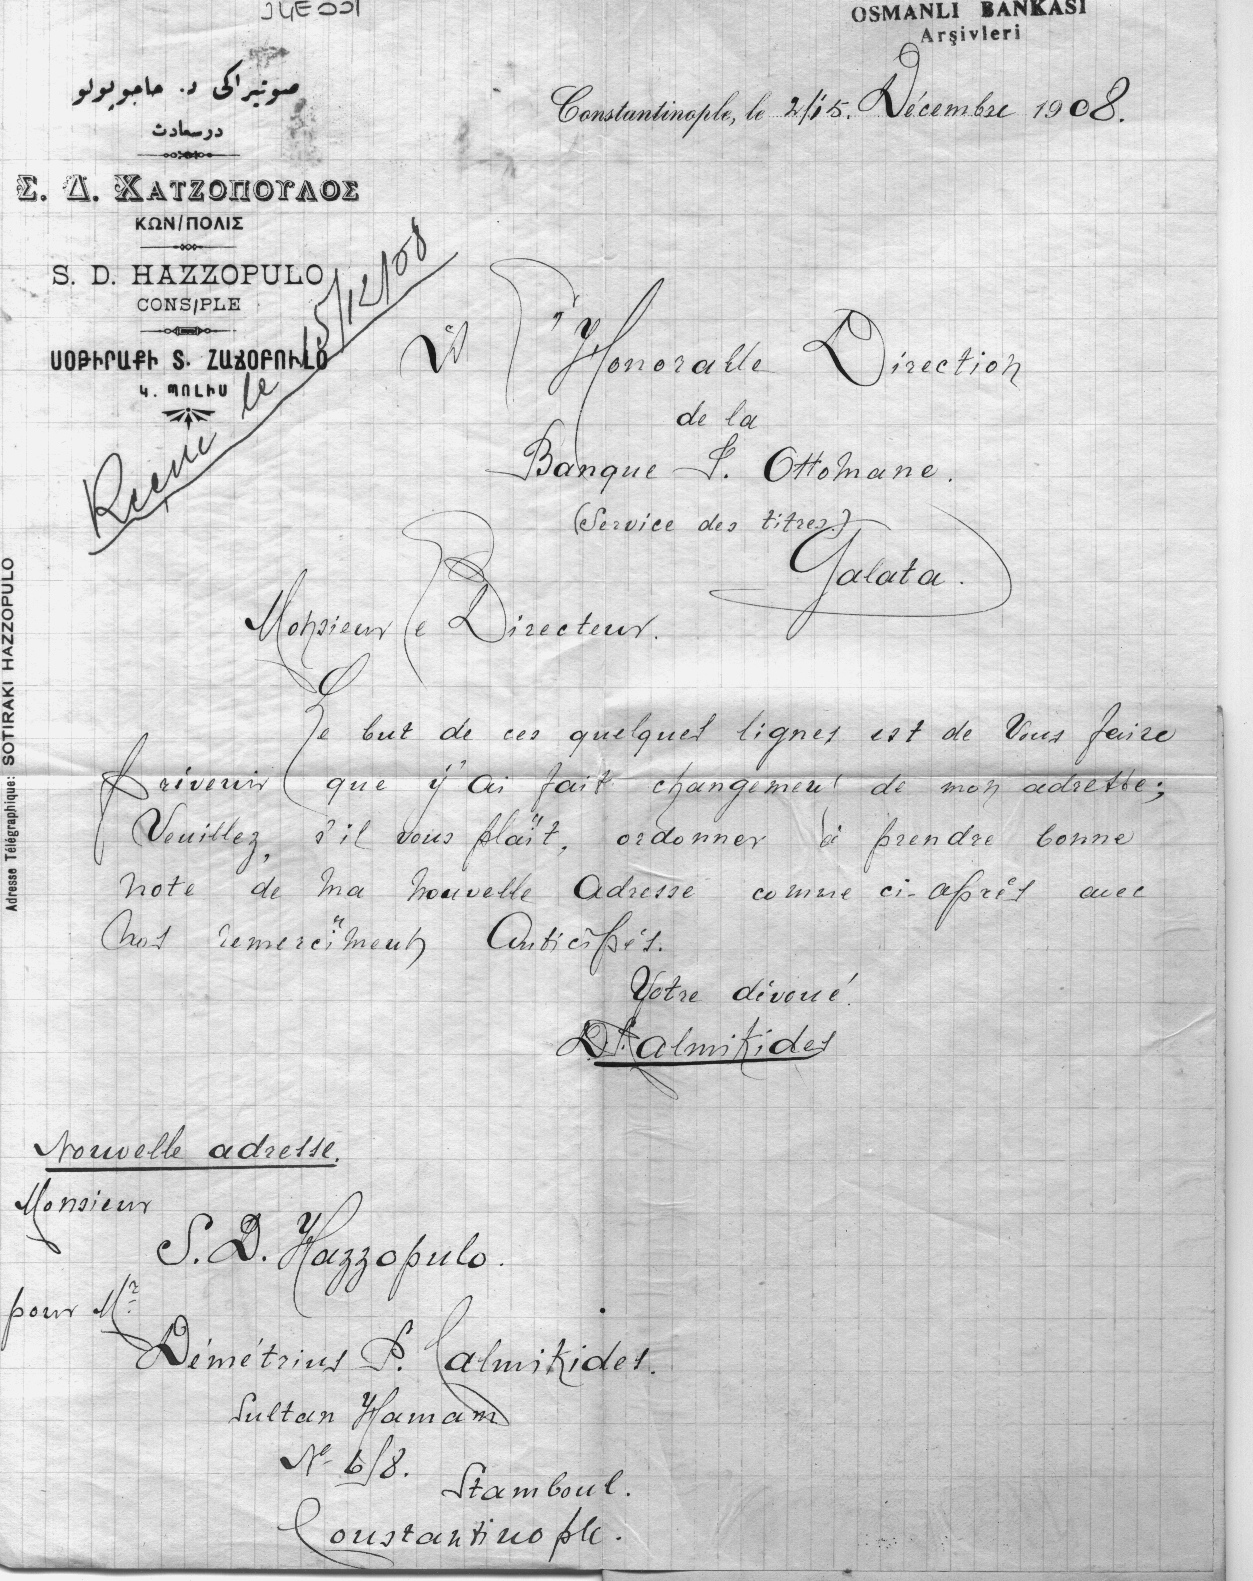 OSMANLI BANKASI
Arşivleri
صوتيراكی د. حاجوپولو
درسعادت
Σ. Δ. ΧΑΤΖΟΠΟΥΛΟΣ
ΚΩΝ/ΠΟΛΙΣ
S. D. HAZZOPULO
CONS/PLE
ՍՕԹԻՐԱՔԻ Տ. ՀԱՃՕԲՈՒԼՕ
Կ. ՊՈԼԻՍ
Reçue le 15/12/08
Adresse Télégraphique: SOTIRAKI HAZZOPULO
Constantinople, le 2/15. Décembre 1908.
l'Honorable Direction
de la
Banque I. Ottomane.
(Service des titres.)
Galata.
Monsieur le Directeur.
Le but de ces quelques lignes est de Vous faire
prévenir que j'ai fait changement de mon adresse;
Veuillez, s'il vous plaît, ordonner à prendre bonne
note de ma nouvelle Adresse comme ci-après avec
nos remerciments Anticipés.
Votre dévoué.
D. P. Calmikides
Nouvelle adresse.
Monsieur
S. D. Hazzopulo.
pour Mr
Démétrius P. Calmikides.
Sultan Hamam
No 6/8.
Stamboul.
Constantinople.